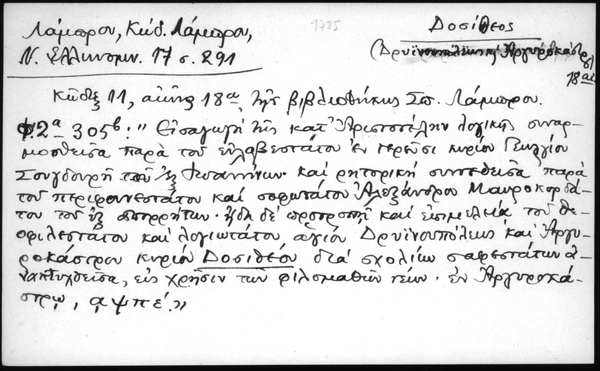 Λάμπρου, Κώδ. Λάμπρου,
Ν. Ελληνομν. 17 σ. 291
1785
Δοσίθεος
(Δρυϊνουπόλεως κ Αργυροκάστρου)
18 αι
Κῶδιξ 11, αἰῶνος 18ου, τῆς βιβλιοθήκης Σπ. Λάμπρου.
Φ. 2α 305β: "Εἰσαγωγὴ τῆς κατ' Ἀριστοτέλην λογικῆς συναρ-
μοσθεῖσα παρὰ τοῦ εὐλαβεστάτου ἐν ἱερεῦσι κυρίου Γεωργίου
Σουγδουρῆ τοῦ ἐξ Ἰωαννίνων καὶ ρητορικὴ συντεθεῖσα παρὰ
τοῦ περιφανεστάτου καὶ σοφωτάτου Ἀλεξάνδρου Μαυροκορδά-
του τοῦ ἐξ ἀπορρήτων· ἤδη δὲ προτροπῇ καὶ ἐπιμελείᾳ τοῦ θε-
οφιλεστάτου καὶ λογιωτάτου ἁγίου Δρυϊνουπόλεως καὶ Ἀργυ-
ροκάστρου κυρίου Δοσιθέου διὰ σχολίων σαφεστάτων ἀ-
ναπτυχθεῖσα, εἰς χρῆσιν τῶν φιλομαθῶν νέων· ἐν Ἀργυροκά-
στρῳ, ͵αψπέ."